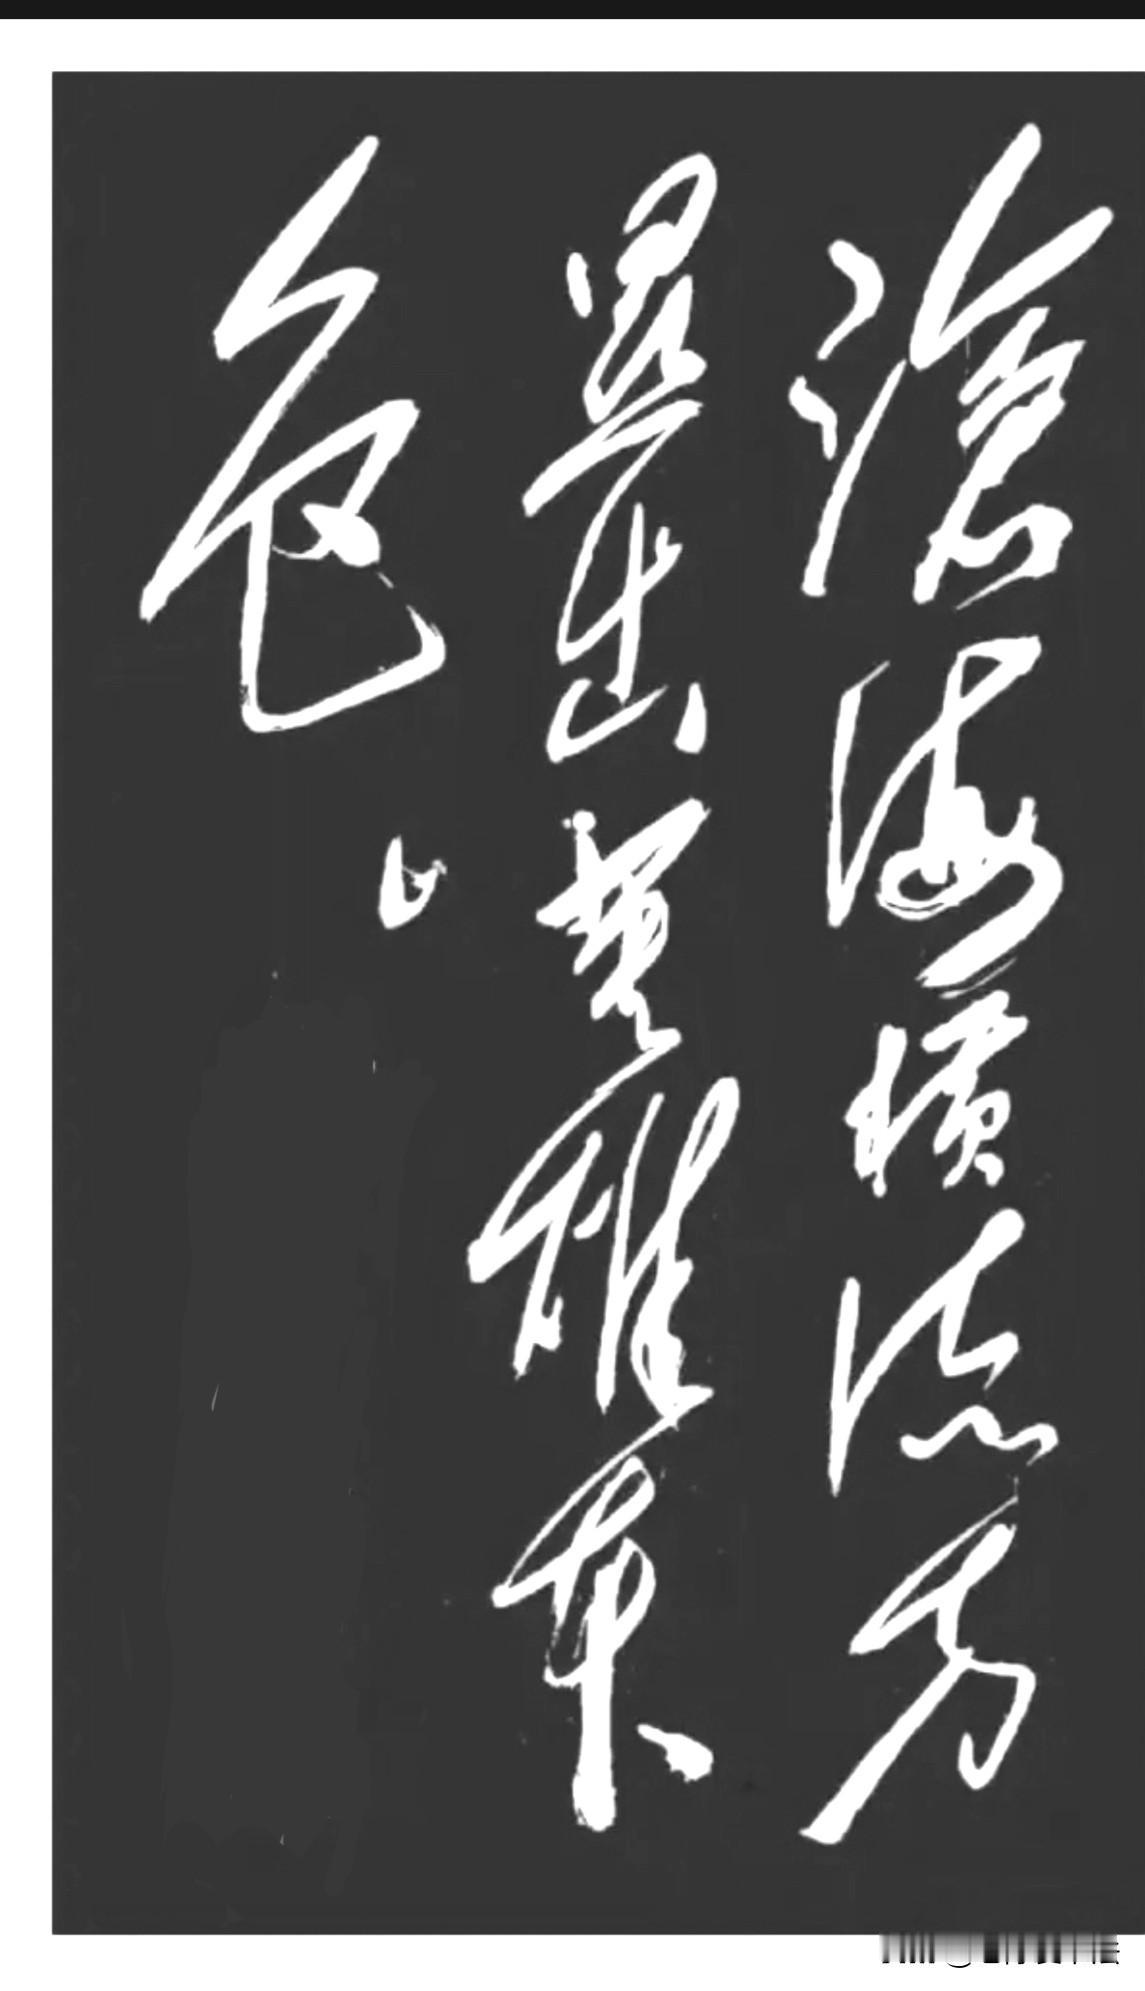 滄海橫流方
显出英雄本
色。